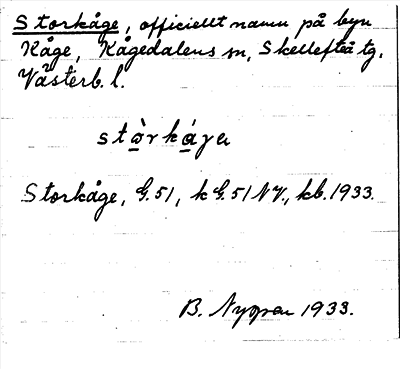 Storkåge, officiellt namn på byn
Kåge, Kågedalens sn, Skellefteå tg,
Västerb. l.
stàrkága
Storkåge, G.51, k G.51 NV., kb. 1933.
B. Nygren 1933.